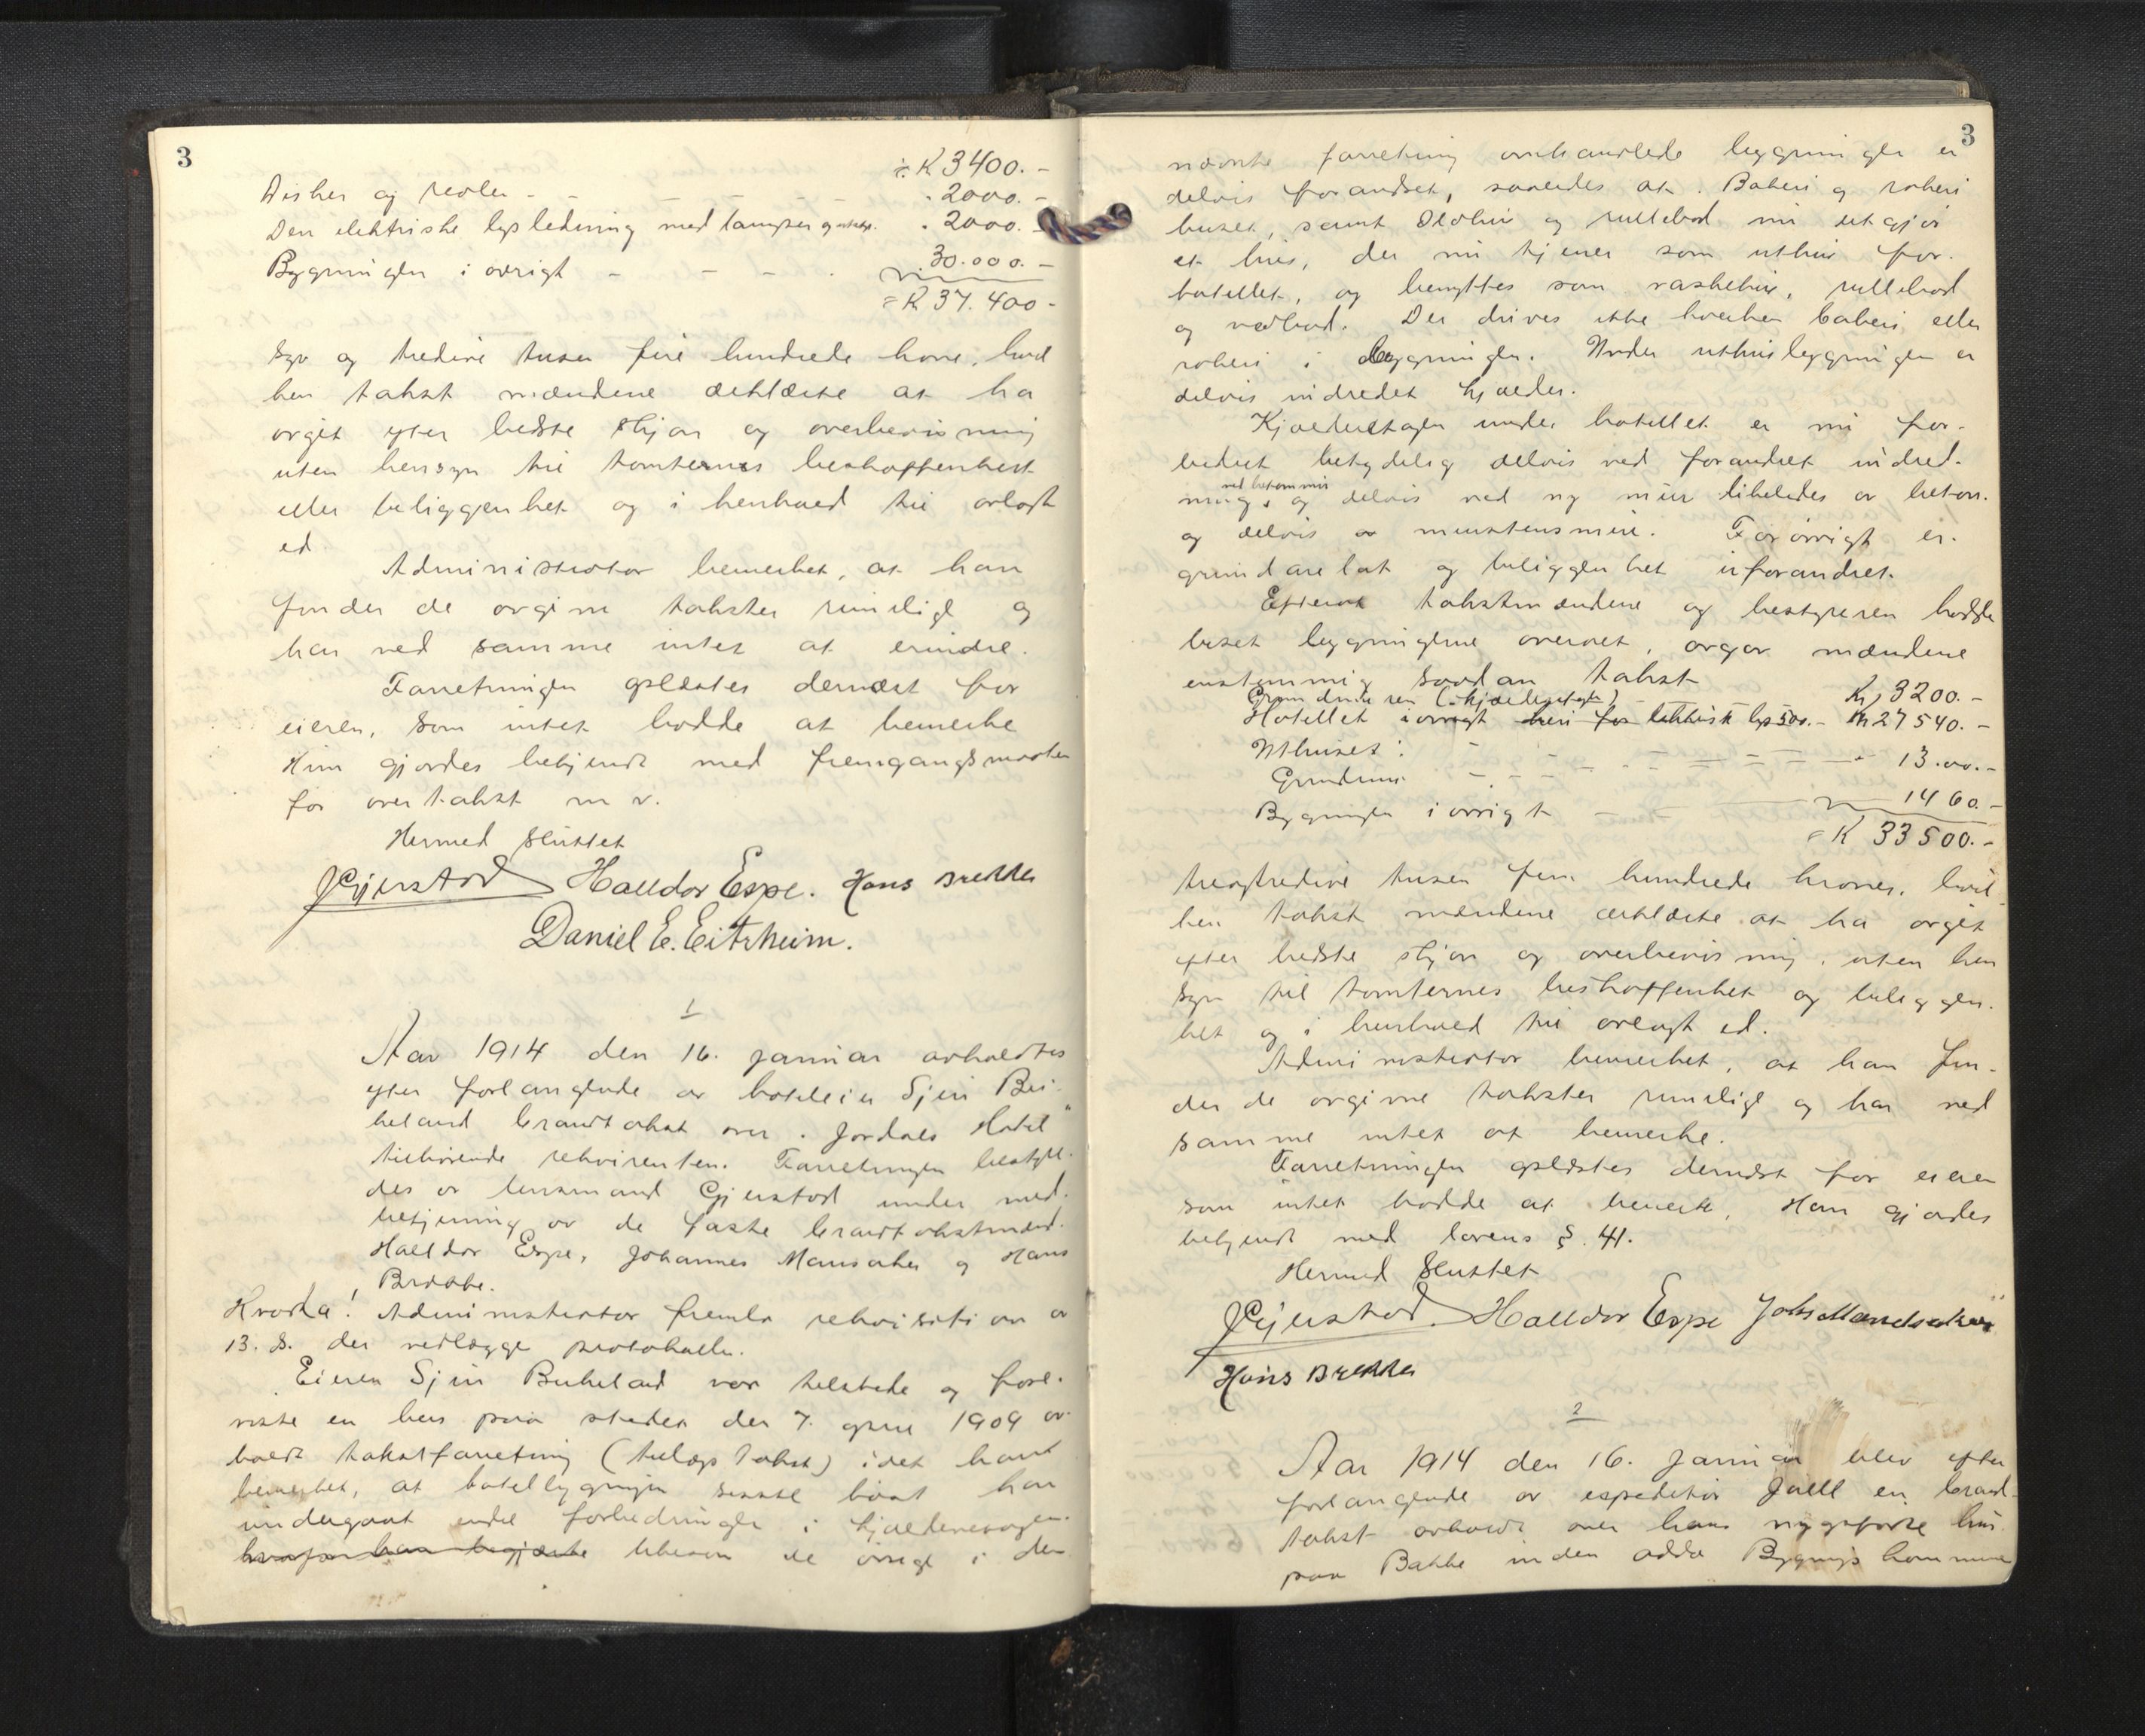 3
÷ K 3400.-
Disker og reoler - - - - - - 2000.-
Den elektriske lysledning med lamper - 2000.-
Bygningen i øvrigt - - - - 30.000.-
= K 37.400-
syv og tredive tusen fire hundrede krone, hvil
ken takst mændene erklærte at ha
avgit efter bedste skjøn og overbevisning
uten hensyn til tomternes beskaffenhet
eller beliggenhet og i henhold til avlagt
ed.
Administrator bemerket, at han
finder de avgivne takster rimelige og
har ved samme intet at erindre.
Forretningen oplæstes dernæst for
eieren, som intet hadde at bemerke
Hun gjordes bekjendt med fremgangsmaaten
for overtakst m v.
Hermed sluttet
Gjerstad Halldor Espe. Hans Brekke
Daniel E. Eitrheim.
1
Aar 1914 den 16. januar avholdtes
efter forlangende av hoteleier Sjur Bu-
keland brandtakst over "Jordals Hotel"
tilhørende rekvirenten. Forretningen bestyr-
des av lensmand Gjerstad under med-
betjening av de faste brandtakstmænd
Halldor Espe, Johannes Mannsaker og Hans
Brække.
Hvorda! Administrator fremla rekvisition av
13. ds. der vedlægges protokollen.
Eieren Sjur Bukeland var tilstede og fore-
viste en her paa stedet den 7. april 1909 av-
holdt takstforretning (tillægstakst) idet han
bemerket, at hotelbygningen siden har
undergaat endel forbedringer i kjælderetagen.
hvorfor han begjærte likesom de øvrige i den
3
nævnte forretning omhandlede bygninger er
delvis forandret, saaledes at Bakeri og røkeri
huset, samt Ildhus og rullebod nu utgjør
et hus, der nu tjener som uthus for
hotellet, og benyttes som vaskehus, rullebod
og vedbod. Der drives ikke hverken bakeri eller
røkeri i bygningen. Under uthusbygningen er
delvis indredet kjælder.
Kjælderetagen under hotellet er nu for-
bedret betydelig delvis ved forandret indred-
ning, ved betonmur og delvis ved ny mur likeledes av beton
og delvis av murstensmur. Forøvrigt er
grundarealet og beliggenhet uforandret.
Efterat takstmændene og bestyreren hadde
beset bygningerne overalt, avgav mændene
enstemmig saadan takst
Grundmuren (: kjælderetagen) Kr. 3200.-
Hotellet iøvrigt heri for elektrisk lys 500.- Kr 27540.-
Uthuset:
Grundmur - - - - - - 13.00.-
Bygningen i øvrigt - - 1460.-
= K 33500.-
treogtredive tusen fem hundrede kroner, hvil
ken takst mændene erklærte at ha avgit
efter bedste skjøn og overbevisning, uten hen
syn til tomternes beskaffenhet og beliggen-
het og i henhold til avlagt ed.
Administrator bemerket, at han fin-
der de avgivne takster rimelige og har ved
samme intet at bemerke.
Forretningen oplæstes dernæst for eieren
som intet hadde at bemerke, Han gjordes
bekjendt med lovens §. 41.
Hermed sluttet
Gjerstad. Halldor Espe Johs Mandsaker
Hans Brekke
2
Aar 1914 den 16. januar blev efter
forlangende av expeditør Juell en brand-
takst avholdt over hans nyopførte hus
paa Bakke inden Odda Bygnings kommune